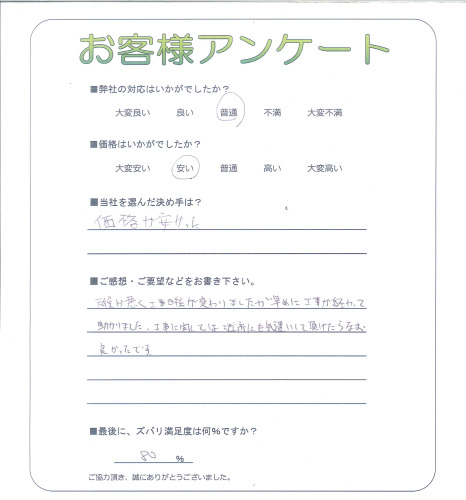 お客様アンケート
■弊社の対応はいかがでしたか？
大変良い 良い 普通 不満 大変不満
■価格はいかがでしたか？
大変安い 安い 普通 高い 大変高い
■当社を選んだ決め手は？
価格が安かった
■ご感想・ご要望などをお書き下さい。
悪く工事日程が変わりましたが早めに工事が終わって
助かりました。工事に関しては近所にも気遣いして頂けたらなお
良かったです
■最後に、ズバリ満足度は何％ですか？
80 ％
ご協力頂き、誠にありがとうございました。